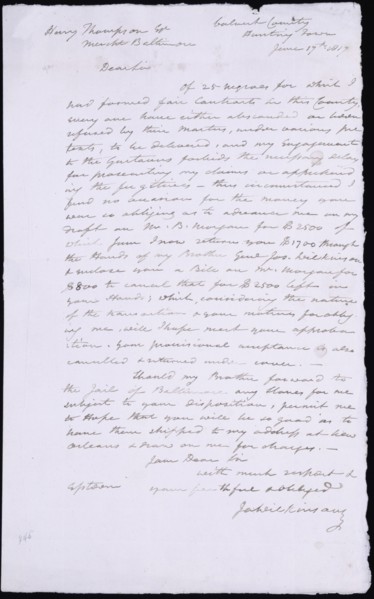 Calvert County
Henry Thompson Esq Hunting Town
Mercht Baltimore June 17th 1817
Dear Sir
Of 25 negroes for which I
had formed fair Contracts in this County
every one have either absconded or been
refused by their Masters, under various pre
texts, to be delivered, and my Engagements
to the Guitavus forbids the necessary delay
for prosecuting my claims or apprehending
the fugitives — thus circumstanced I
find no occasion for the money you
were so obliging as to advance me on my
draft on Mr. B. Morgan for $2500 of
which Sum I now return you $1700 through
the Hands of my Brother Genl Jos. Wilkinson
& enclose you a Bill on Mr. Morgan for
$800 to cancel that for $2500 left in
your Hands; which, considering the nature
of the transaction & your motives for oblig
ing me, will I hope meet your approba
tion. your provisional acceptance is also
cancelled & returned under cover. —
Should my Brother forward to
the Jail of Baltimore, any Slaves for me
subject to your disposition, permit me
to Hope that you will be so good as to
have them shipped to my address at New
Orleans & draw on me for charges. —
I am Dear Sir
with much respect &
your faithful & obliged
Ja Wilkinson